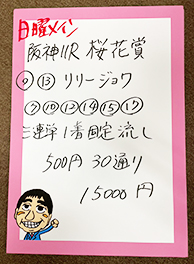 日曜メイン
阪神11R 桜花賞
◎ ⑬ リリージョウ
⑦ ⑩ ⑫ ⑭ ⑮ ⑰
三連単 1着固定流し
500円 30通り
15000円